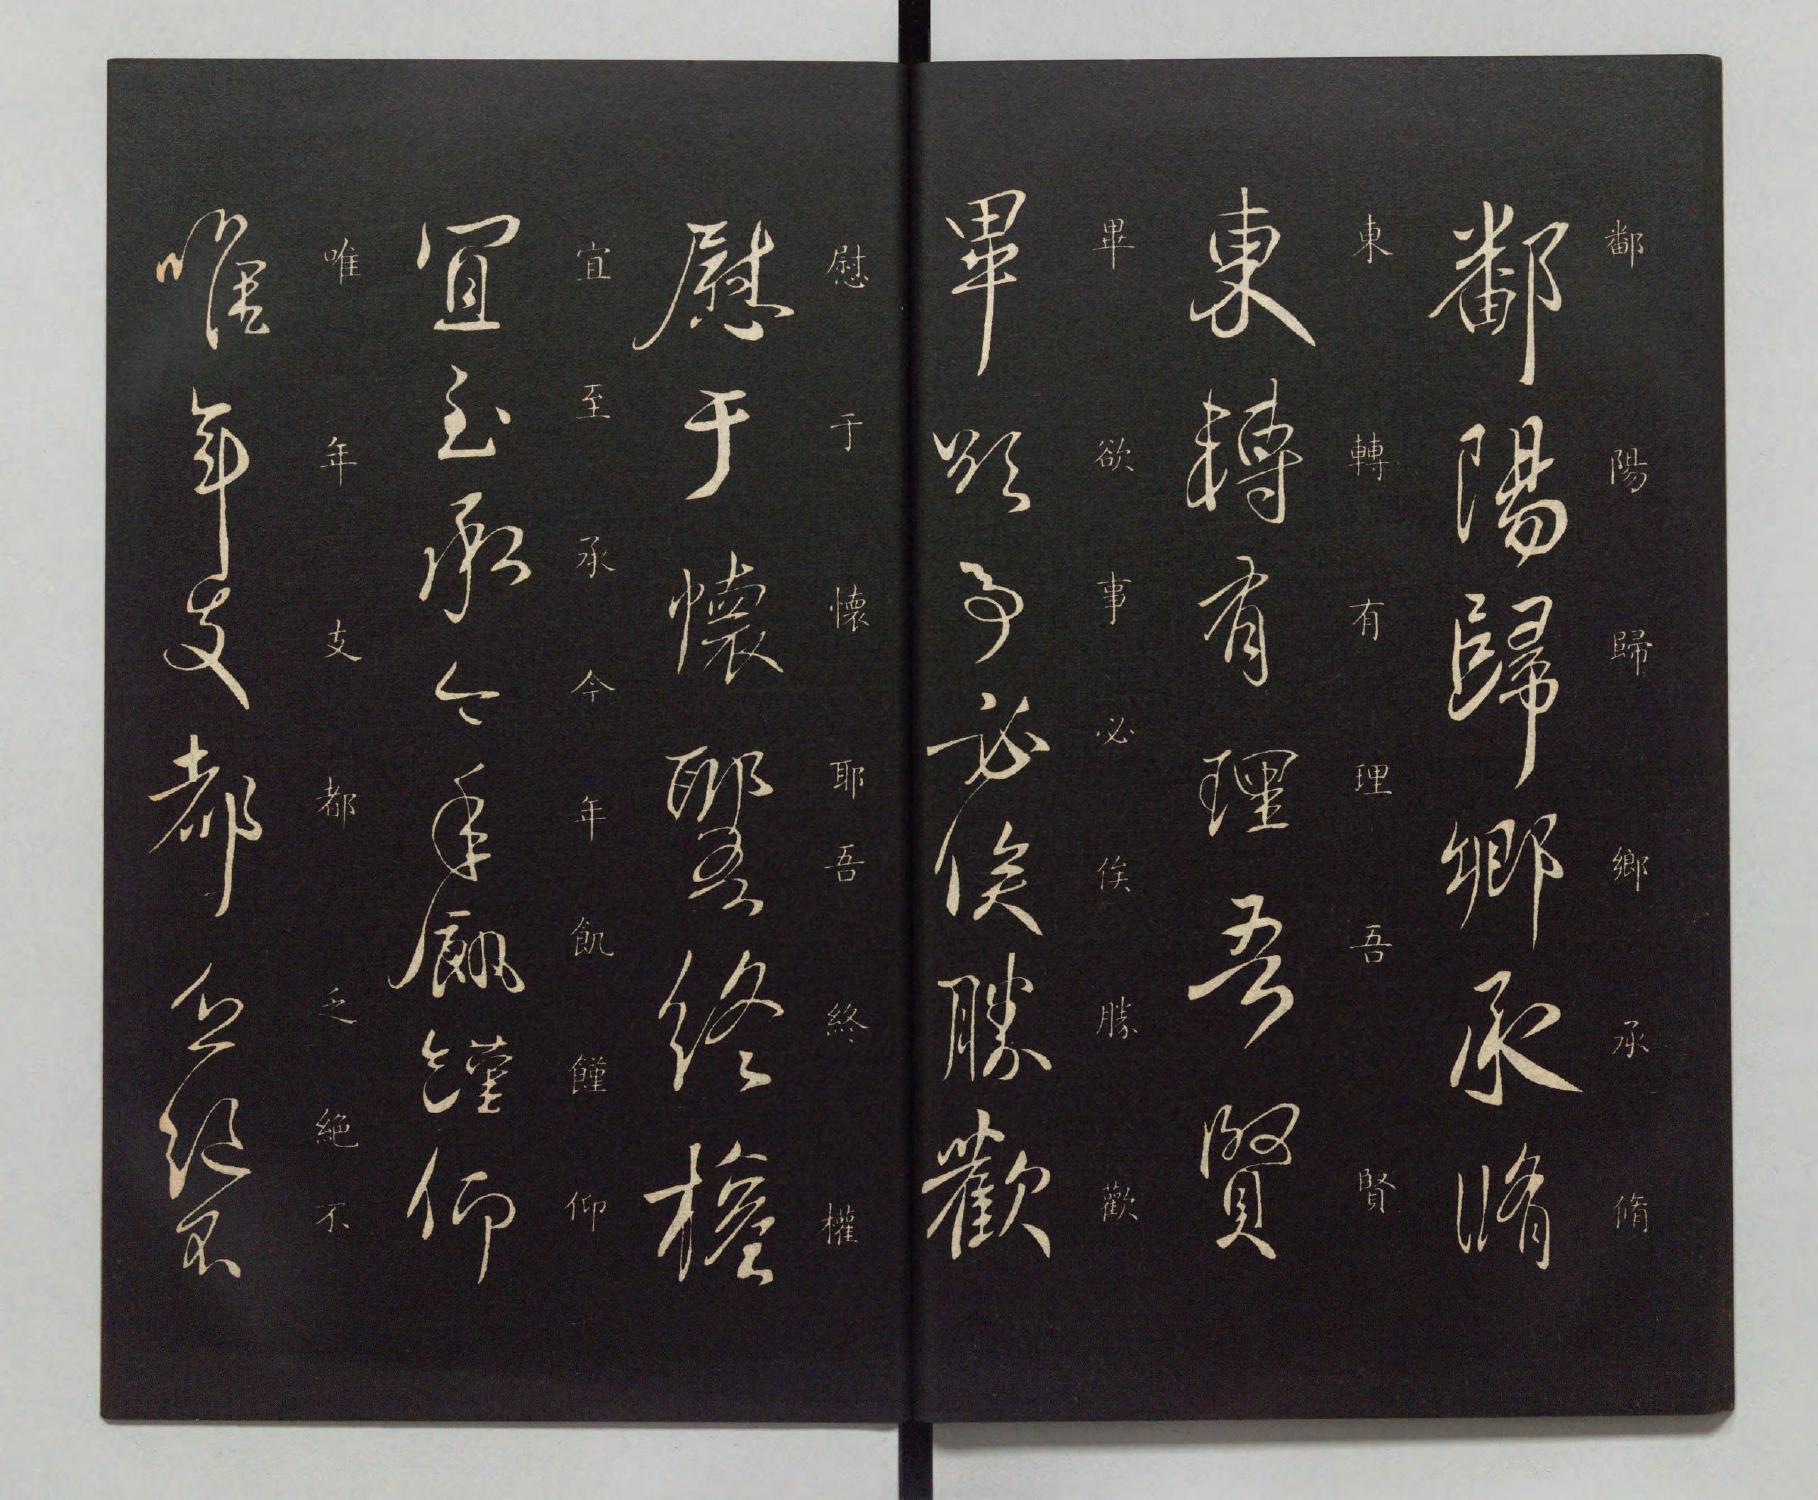 鄱陽歸鄉承脩
鄱陽歸鄉承脩
東轉有理吾賢
東轉有理吾賢
畢欲事必俟勝歡
畢欲事必俟勝歡
慰于懷耶吾終權
慰于懷耶吾終權
宜至承今年飢饉仰
宜至承今年飢饉仰
唯年支都乏絕不
唯年支都乏絕不